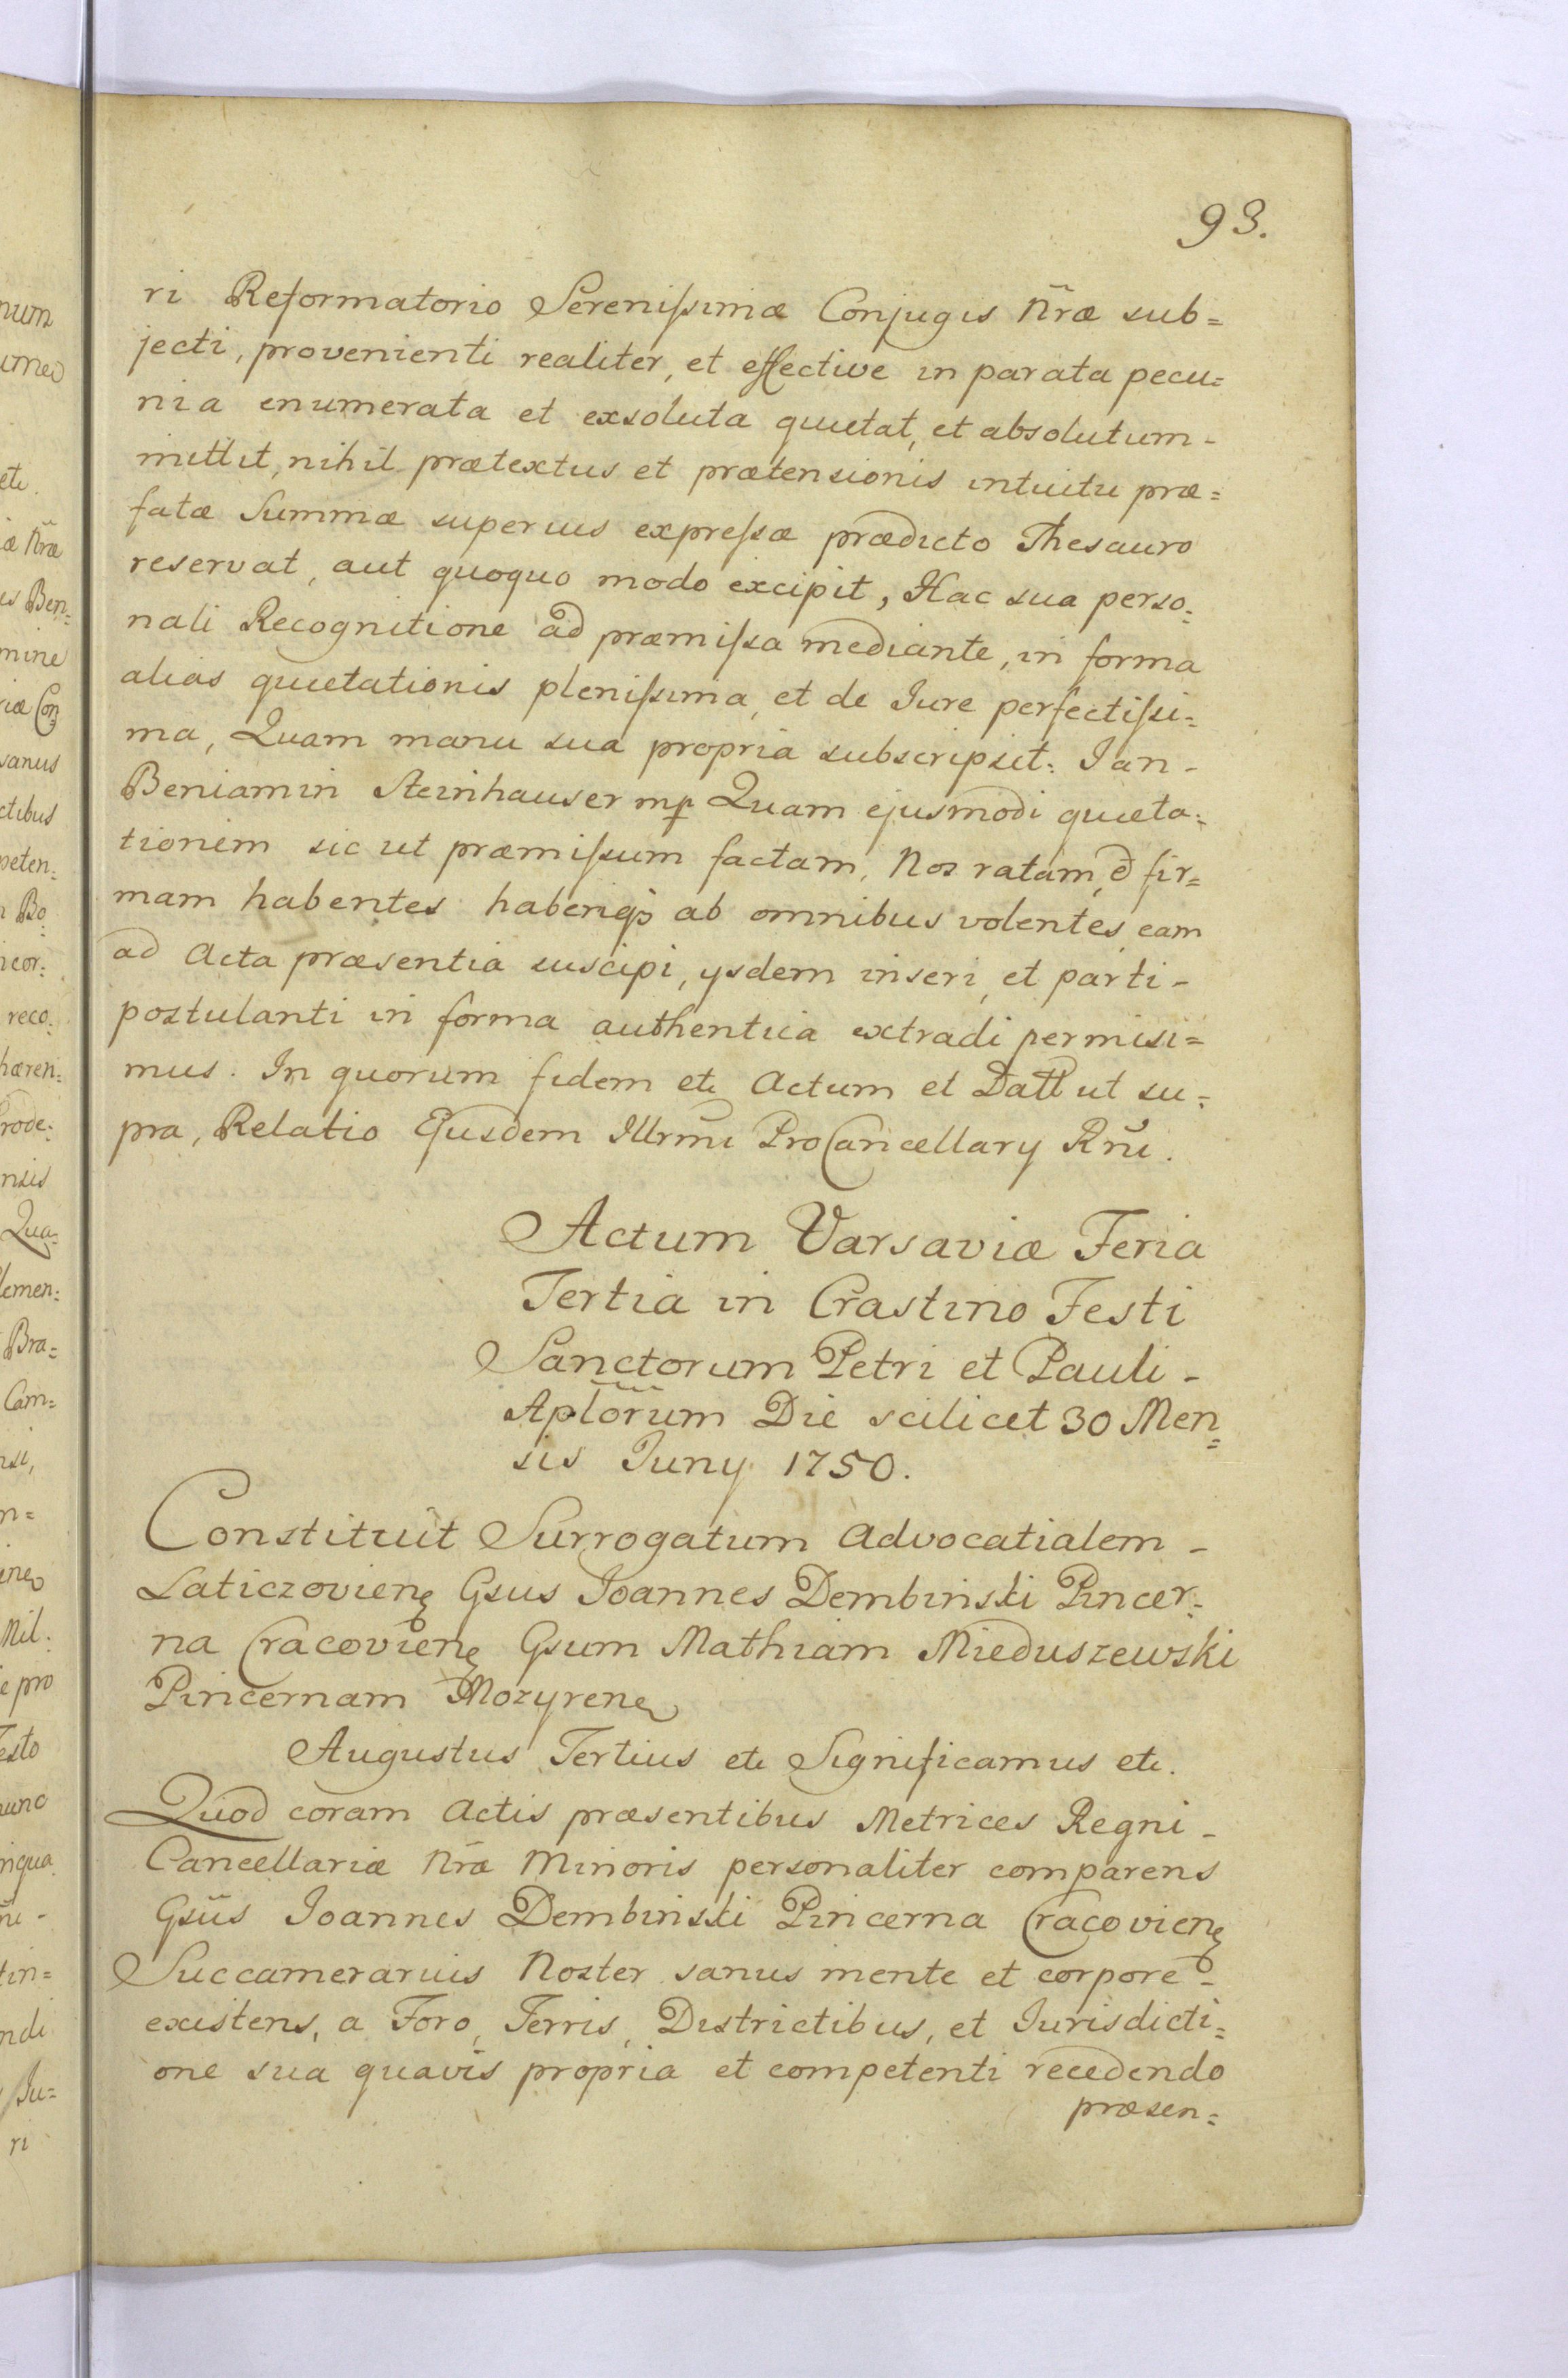 93.
ri Reformatorio Serenissimæ Conjugis Nr̃æ sub=
jecti, provenienti realiter, et effective in parata pecu=
nia enumerata et exsoluta quietat, et absolutum -
mittit, nihil prætextus et prætensionis intuitu præ=
fatæ Summæ superius expressæ prædicto Thesauro
reservat, aut quoquo modo excipit, Hac sua perso=
nali Recognitione ad præmissa mediante, in forma
alias quietationis plenissima, et de Jure perfectissi=
ma, Quam manu sua propria subscripsit: Jan -
Beniamin Steinhauser mp Quam ejusmodi quieta=
tionem sic ut præmissum factam, Nos ratam, et fir=
mam habentes haberiq3 ab omnibus volentes, eam
ad Acta præsentia suscipi, ysdem inseri, et parti -
postulanti in forma authentica extradi permisi=
mus. In quorum fidem etc Actum et Datt ut su=
pra, Relatio Ejusdem Illrmi ProCancellary Rñi.
Actum Varsaviæ Feria
Tertia in Crastino Festi
Sanctorum Petri et Pauli -
Aplõrum Die scilicet 30 Men=
sis Juny 1750.
Constituit Surrogatum Advocatialem -
Laticzoviens Gsus Joannes Dembinski Pincer=
na Cracoviens Gsum Mathiam Mieduszewski
Pincernam Mozyrens
Augustus Tertius etc Significamus etc.
Quod coram Actis præsentibus Metrices Regni -
Cancellariæ Nr̃æ Minoris personaliter comparens
Gsus Joannes Dembinski Pincerna Cracoviens
Succamerarius Noster sanus mente et corpore -
existens, a Foro, Terris, Districtibus, et Jurisdicti=
one sua quavis propria et competenti recedendo
præsen=